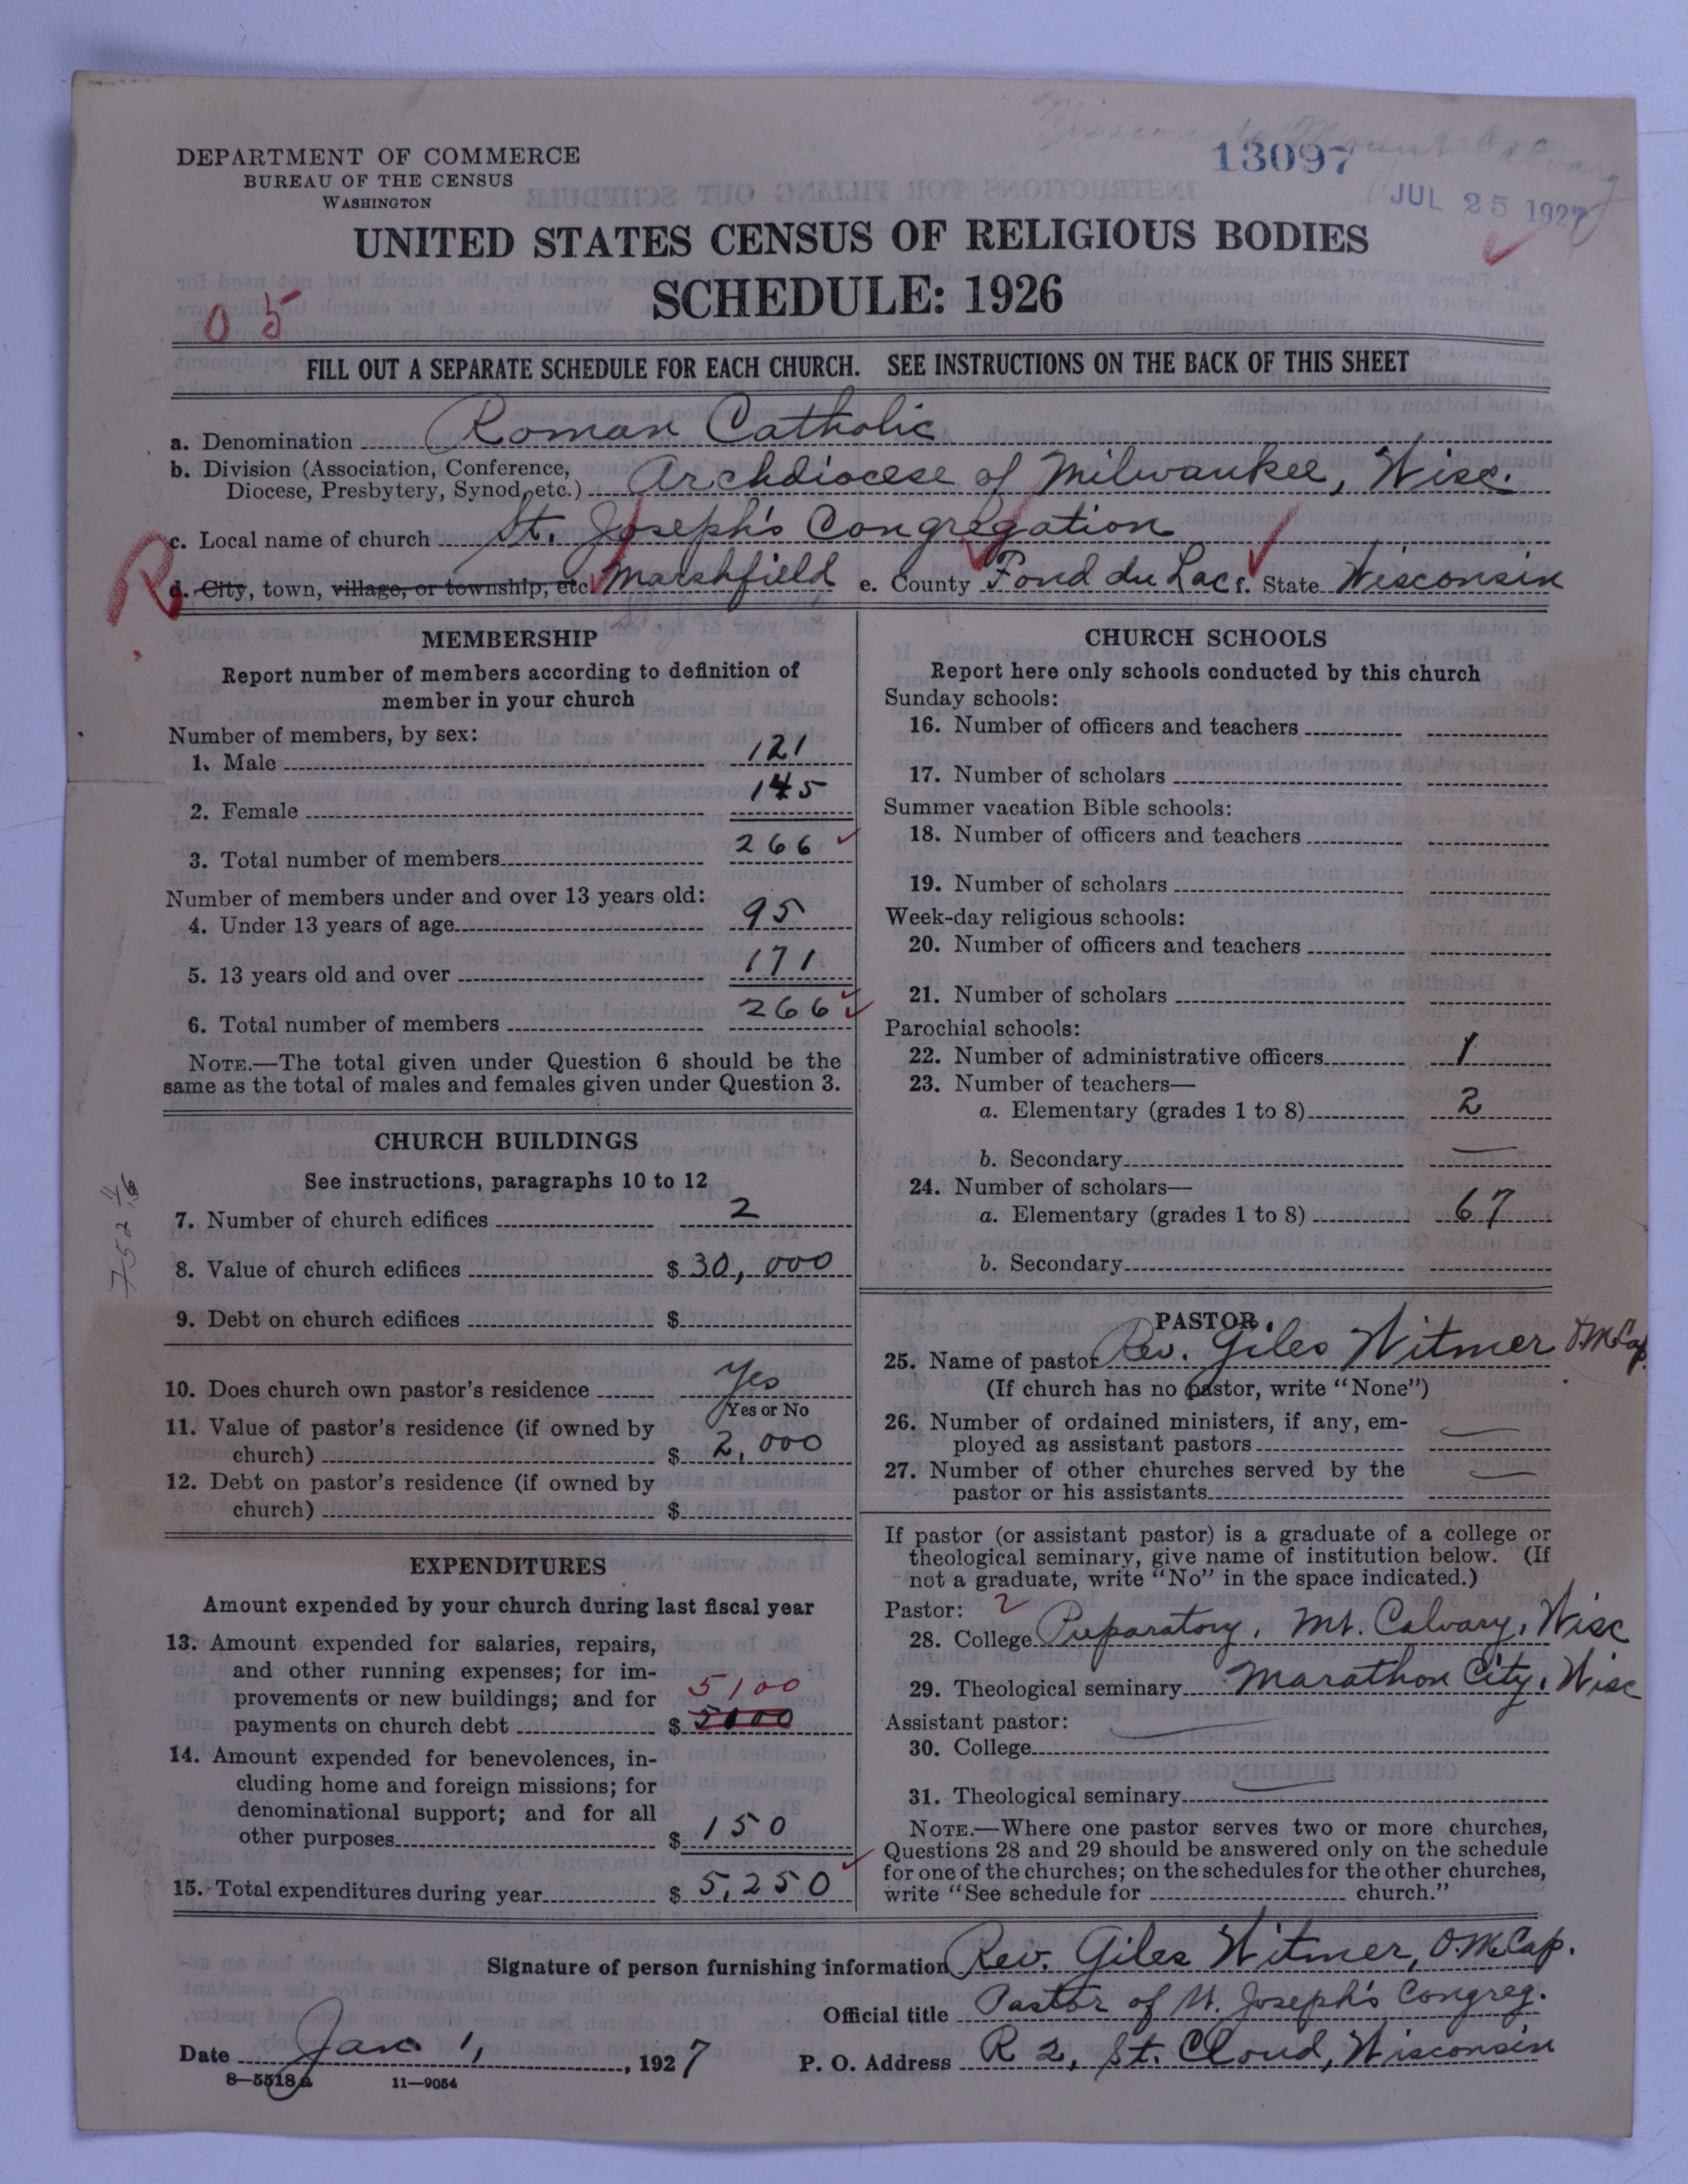 13097
JUL 25 1927
DEPARTMENT OF COMMERCE
BUREAU OF THE CENSUS
WASHINGTON
UNITED STATES CENSUS OF RELIGIOUS BODIES
SCHEDULE: 1926
05
FILL OUT A SEPARATE SCHEDULE FOR EACH CHURCH. SEE INSTRUCTIONS ON THE BACK OF THIS SHEET
a. Denomination Roman Catholic
b. Division (Association, Conference,
Diocese, Presbytery, Synod, etc.) Archdiocese of Milwaukee, Wisc.
c. Local name of church St. Joseph's Congregation
R
d. City, town, village, or township, etc. Marshfield e. County Fond du Lac f. State Wisconsin
MEMBERSHIP
Report number of members according to definition of
member in your church
Number of members, by sex:
1. Male 121
2. Female 145
3. Total number of members 266
Number of members under and over 13 years old:
4. Under 13 years of age 95
5. 13 years old and over 171
6. Total number of members 266
NOTE.—The total given under Question 6 should be the
same as the total of males and females given under Question 3.
CHURCH BUILDINGS
See instructions, paragraphs 10 to 12
7. Number of church edifices 2
8. Value of church edifices $ 30,000
9. Debt on church edifices $
10. Does church own pastor's residence Yes
Yes or No
11. Value of pastor's residence (if owned by
church) $ 2,000
12. Debt on pastor's residence (if owned by
church) $
EXPENDITURES
Amount expended by your church during last fiscal year
13. Amount expended for salaries, repairs,
and other running expenses; for im-
provements or new buildings; and for 5100
payments on church debt $
14. Amount expended for benevolences, in-
cluding home and foreign missions; for
denominational support; and for all
other purposes $ 150
15. Total expenditures during year $ 5,250
CHURCH SCHOOLS
Report here only schools conducted by this church
Sunday schools:
16. Number of officers and teachers
17. Number of scholars
Summer vacation Bible schools:
18. Number of officers and teachers
19. Number of scholars
Week-day religious schools:
20. Number of officers and teachers
21. Number of scholars
Parochial schools:
22. Number of administrative officers 1
23. Number of teachers—
a. Elementary (grades 1 to 8) 2
b. Secondary —
24. Number of scholars—
a. Elementary (grades 1 to 8) 67
b. Secondary
PASTOR
25. Name of pastor Rev. Giles Witmer O.M.Cap.
(If church has no pastor, write "None")
26. Number of ordained ministers, if any, em-
ployed as assistant pastors —
27. Number of other churches served by the
pastor or his assistants —
If pastor (or assistant pastor) is a graduate of a college or
theological seminary, give name of institution below. (If
not a graduate, write "No" in the space indicated.)
Pastor: 2
28. College Preparatory, Mt. Calvary, Wisc
29. Theological seminary Marathon City, Wisc
Assistant pastor:
30. College —
31. Theological seminary —
NOTE.—Where one pastor serves two or more churches,
Questions 28 and 29 should be answered only on the schedule
for one of the churches; on the schedules for the other churches,
write "See schedule for church."
Signature of person furnishing information Rev. Giles Witmer, O.M.Cap.
Official title Pastor of St. Joseph's Congreg.
Date Jan. 1, 1927 P. O. Address R 2, St. Cloud, Wisconsin
8—5518a 11—9054